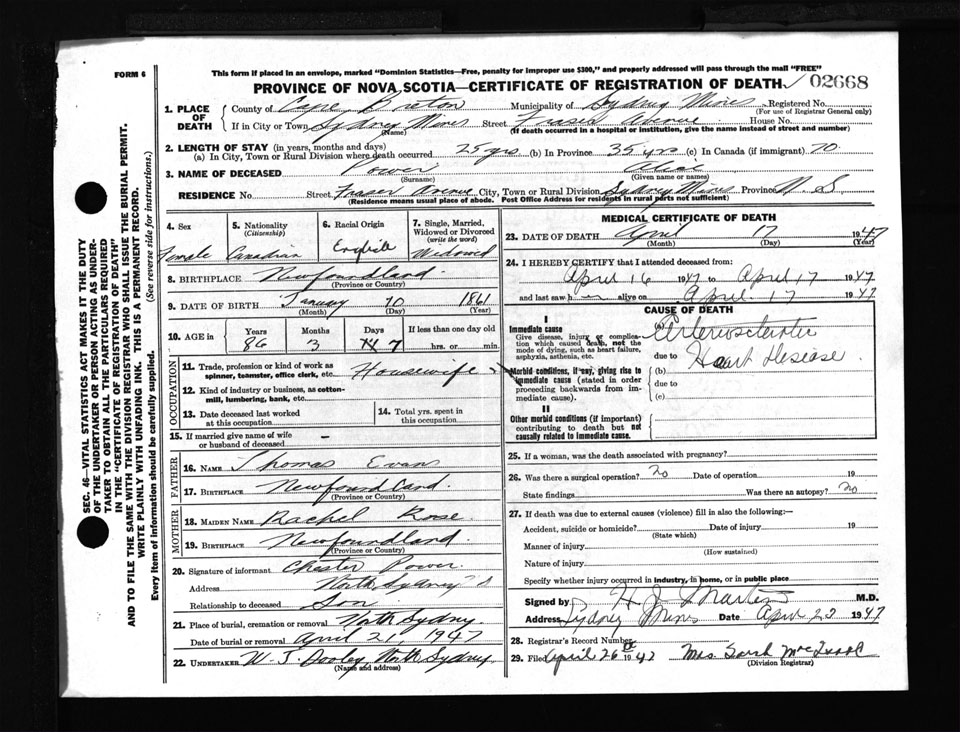 This form if placed in an envelope, marked "Dominion Statistics—Free, penalty for improper use $300," and properly addressed will pass through the mail "FREE"
FORM 6
PROVINCE OF NOVA SCOTIA—CERTIFICATE OF REGISTRATION OF DEATH
02668
SEC. 46—VITAL STATISTICS ACT MAKES IT THE DUTY
OF THE UNDERTAKER OR PERSON ACTING AS UNDER-
TAKER TO OBTAIN ALL THE PARTICULARS REQUIRED
IN THE "CERTIFICATE OF REGISTRATION OF DEATH"
AND TO FILE THE SAME WITH THE DIVISION REGISTRAR WHO SHALL ISSUE THE BURIAL PERMIT.
WRITE PLAINLY WITH UNFADING INK. THIS IS A PERMANENT RECORD.
Every item of information should be carefully supplied. (See reverse side for instructions.)
1. PLACE OF DEATH
County of Cape Breton Municipality of Sydney Mines Registered No.
(For use of Registrar General only)
If in City or Town Sydney Mines Street Fraser Avenue House No.
(Name) (If death occurred in a hospital or institution, give the name instead of street and number)
2. LENGTH OF STAY (in years, months and days)
(a) In City, Town or Rural Division where death occurred 25 yrs (b) In Province 35 yrs (c) In Canada (if immigrant) 70
3. NAME OF DECEASED Power Alice
(Surname) (Given name or names)
RESIDENCE No. Street Fraser Avenue City, Town or Rural Division Sydney Mines Province N.S
(Residence means usual place of abode. Post Office Address for residents in rural parts not sufficient)
4. Sex Female
5. Nationality (Citizenship) Canadian
6. Racial Origin English
7. Single, Married, Widowed or Divorced (write the word) Widowed
8. BIRTHPLACE Newfoundland
(Province or Country)
9. DATE OF BIRTH January 10 1861
(Month) (Day) (Year)
10. AGE in Years Months Days If less than one day old
86 3 7 hrs. or min.
OCCUPATION
11. Trade, profession or kind of work as spinner, teamster, office clerk, etc. Housewife
12. Kind of industry or business, as cotton-mill, lumbering, bank, etc.
13. Date deceased last worked at this occupation
14. Total yrs. spent in this occupation
15. If married give name of wife or husband of deceased –
FATHER
16. NAME Thomas Evans
17. BIRTHPLACE Newfoundland
(Province or Country)
MOTHER
18. MAIDEN NAME Rachel Rose
19. BIRTHPLACE Newfoundland
(Province or Country)
20. Signature of informant Chester Power
Address North Sydney
Relationship to deceased Son
21. Place of burial, cremation or removal North Sydney
Date of burial or removal April 21, 1947
22. UNDERTAKER W. J. Dooley, North Sydney
(Name and address)
MEDICAL CERTIFICATE OF DEATH
23. DATE OF DEATH April 17 1947
(Month) (Day) (Year)
24. I HEREBY CERTIFY that I attended deceased from:
April 16 1947 to April 17 1947
and last saw h er alive on April 17 1947
CAUSE OF DEATH
I
Immediate cause
Give disease, injury or complication which caused death, not the mode of dying, such as heart failure, asphyxia, asthenia, etc.
Arteriosclerotic
due to Heart Disease
Morbid conditions, if any, giving rise to immediate cause (stated in order proceeding backwards from immediate cause).
(b)
due to
(c)
II
Other morbid conditions (if important) contributing to death but not causally related to immediate cause.
25. If a woman, was the death associated with pregnancy?
26. Was there a surgical operation? no Date of operation 19
State findings Was there an autopsy? no
27. If death was due to external causes (violence) fill in also the following:—
Accident, suicide or homicide? Date of injury 19
(State which)
Manner of injury
(How sustained)
Nature of injury
Specify whether injury occurred in industry, in home, or in public place
Signed by H J Martin M.D.
Address Sydney Mines Date April 22 1947
28. Registrar's Record Number
29. Filed April 26 1947 Mrs. Sarah
(Division Registrar)